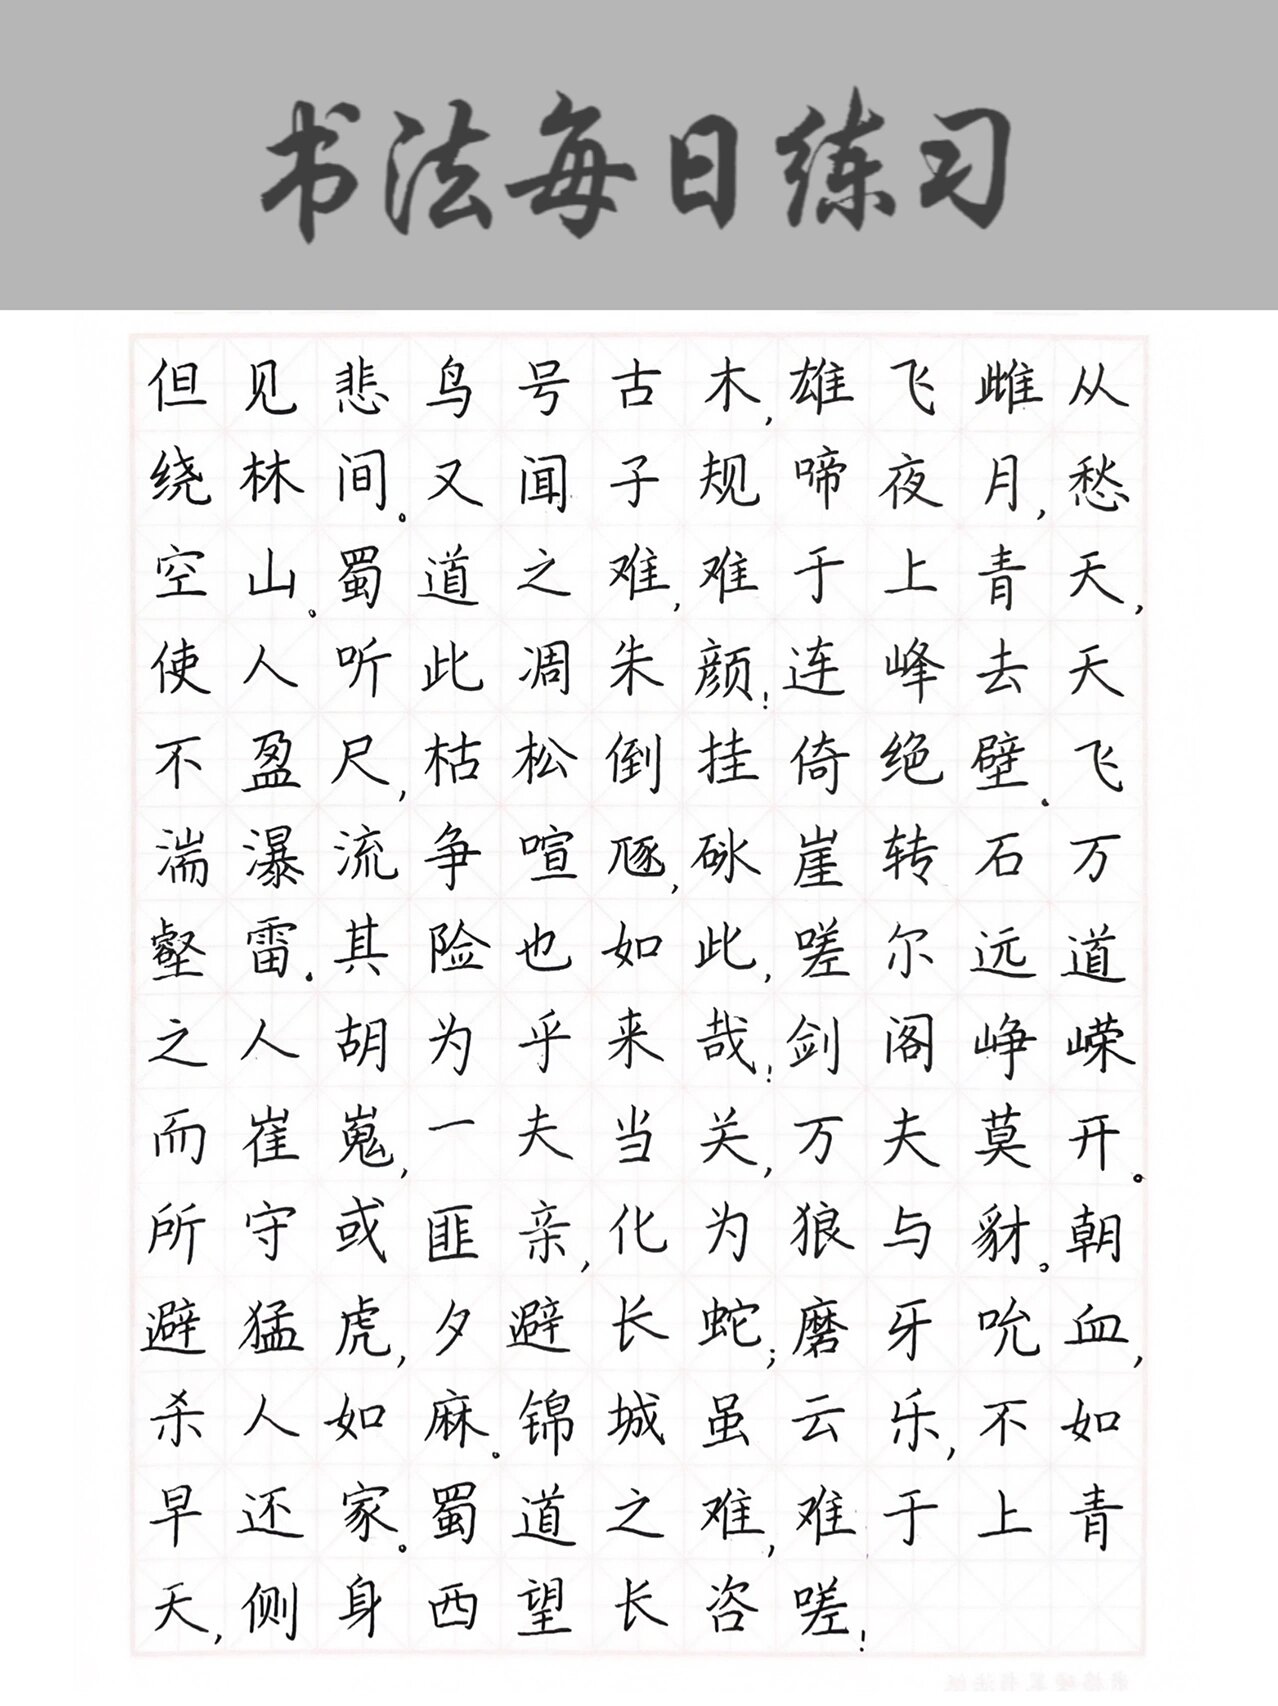 书法每日练习
但见悲鸟号古木,雄飞雌从
绕林间。又闻子规啼夜月,愁
空山。蜀道之难,难于上青天,
使人听此凋朱颜!连峰去天
不盈尺,枯松倒挂倚绝壁。飞
湍瀑流争喧豗,砯崖转石万
壑雷。其险也如此,嗟尔远道
之人胡为乎来哉!剑阁峥嵘
而崔嵬,一夫当关,万夫莫开。
所守或匪亲,化为狼与豺。朝
避猛虎,夕避长蛇;磨牙吮血,
杀人如麻。锦城虽云乐,不如
早还家。蜀道之难,难于上青
天,侧身西望长咨嗟!